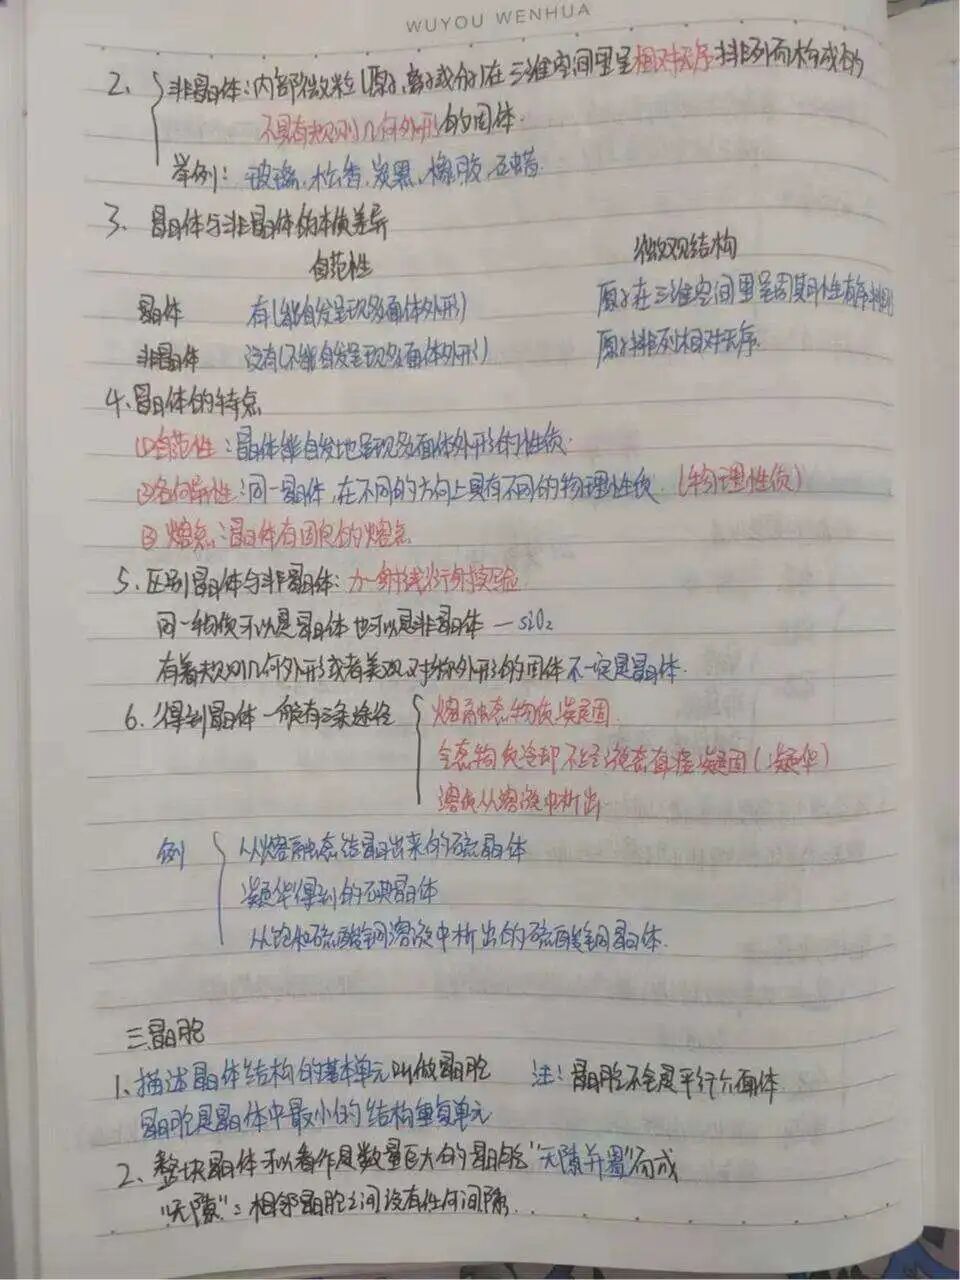 WUYOU WENHUA
2、非晶体：内部微粒(原子、离子或分子)在三维空间里呈相对无序排列而构成的
不具有规则几何外形的固体.
举例：玻璃、松香、炭黑、橡胶、石蜡.
3、晶体与非晶体的本质差异
自范性 微观结构
晶体 有(能自发呈现多面体外形) 原子在三维空间里呈周期性有序排列
非晶体 没有(不能自发呈现多面体外形) 原子排列相对无序.
4、晶体的特点
(1)自范性：晶体能自发地呈现多面体外形的性质.
(2)各向异性：同一晶体，在不同的方向上具有不同的物理性质. (物理性质)
(3)熔点：晶体有固定的熔点
5、区别晶体与非晶体：X-射线衍射实验
同一物质可以是晶体也可以是非晶体—SiO₂
有着规则几何外形或者美观对称外形的固体不一定是晶体.
6、得到晶体一般有三条途径 熔融态物质凝固.
气态物质冷却不经液态直接凝固(凝华)
溶质从溶液中析出
例 从熔融态结晶出来的硫晶体
凝华得到的碘晶体
从饱和硫酸铜溶液中析出的硫酸铜晶体.
三晶胞
1、描述晶体结构的基本单元叫做晶胞 注：晶胞不全是平行六面体
晶胞是晶体中最小的结构重复单元
2、整块晶体可以看作是数量巨大的晶胞"无隙并置"而成
"无隙"：相邻晶胞之间没有任何间隙.